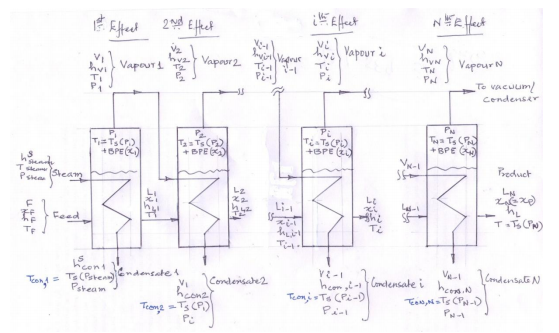 1st Effect
2nd Effect
ith Effect
Nth Effect
V1
hv1
T1
P1
Vapour 1
V2
hv2
T2
P2
Vapour 2
Vi-1
hvi-1
Ti-1
Pi-1
Vapour i-1
Vi
hvi
Ti
Pi
Vapour i
VN
hvN
TN
PN
Vapour N
To vacuum/
condenser
P1
T1 = Ts(P1)
+BPE(x1)
P2
T2 = Ts(P2)
+BPE(x2)
Pi
Ti = Ts(Pi)
+BPE(xi)
PN
TN = Ts(PN)
+BPE(xN)
S
hsteam
Tsteam
Psteam
Steam
F
hF
TF
Feed
L1
x1
hL1
T1
L2
x2
hL2
T2
Li-1
xi-1
hLi-1
Ti-1
Li
xi
hLi
Ti
VN-1
LN-1
Product
LN
xN(=xP)
hL
T = Ts(PN)
Tcon,1 =
S
hcon1
Ts(Psteam)
Psteam
Condensate 1
Tcon,2 =
V1
hcon2
Ts(P1)
Pi
Condensate 2
Tcon,i =
Vi-1
hcon,i-1
Ts(Pi-1)
Pi-1
Condensate i
Tcon,N =
VN-1
hcons,N-1
Ts(PN-1)
PN-1
Condensate N